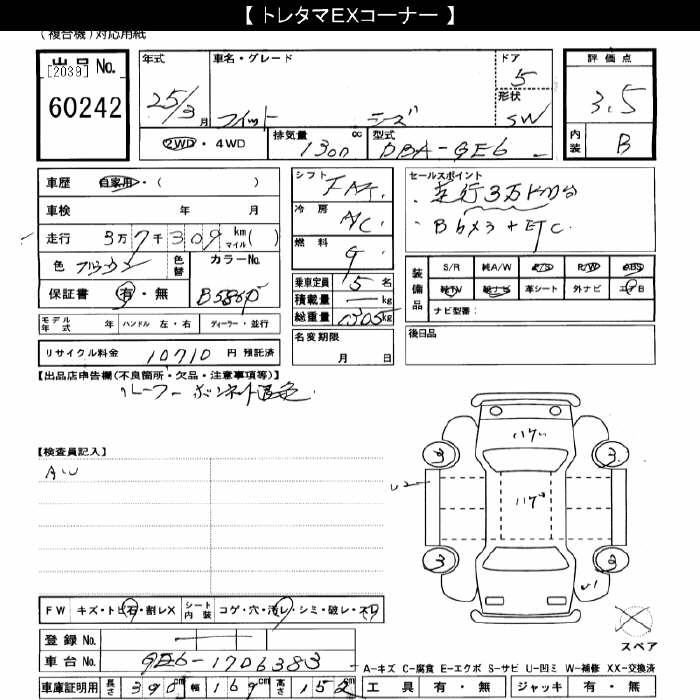 【 トレタマEXコーナー 】
（複合機）対応用紙
出品 No.
[2039]
60242
年式
25/3月
車名・グレード
フィット シーズ
ドア
5
形状
SW
評価点
3.5
内装
B
2WD ・ 4WD
排気量 cc
1300
型式
DBA-GE6
車歴 自家用・( )
車検 年 月
走行 3万7千309 km マイル ( )
色 ブラウン 色替 カラーNo.
保証書 有・無 B586P
モデル年式 年 ハンドル 左・右 ディーラー・並行
リサイクル料金 10710 円 預託済
シフト FAT
冷房 A/C
燃料 G
乗車定員 5 名
積載量 ― kg
総重量 1305 kg
名変期限
月 日
セールスポイント
・走行3万
・Bカメラ+ETC.
装備品
S/R 純A/W P/S P/W ABS
純TV 純ナビ 革シート 外ナビ エアB
ナビ型番:
後日品
【出品店申告欄(不良箇所・欠品・注意事項等)】
ルーフ ボンネット退色
【検査員記入】
AW
ハゲ
ハゲ
3
3
3
3
U2
U1
FW キズ・トビ石・割レX シート内装 コゲ・穴・汚レ・シミ・破レ・スレ
登録 No.
車台 No. GE6-1706383
車庫証明用 長さ 390cm 幅 169cm 高さ 152cm
スペア
A-キズ C-腐食 E-エクボ S-サビ U-凹ミ W-補修 XX-交換済
工具 有・無 ジャッキ 有・無